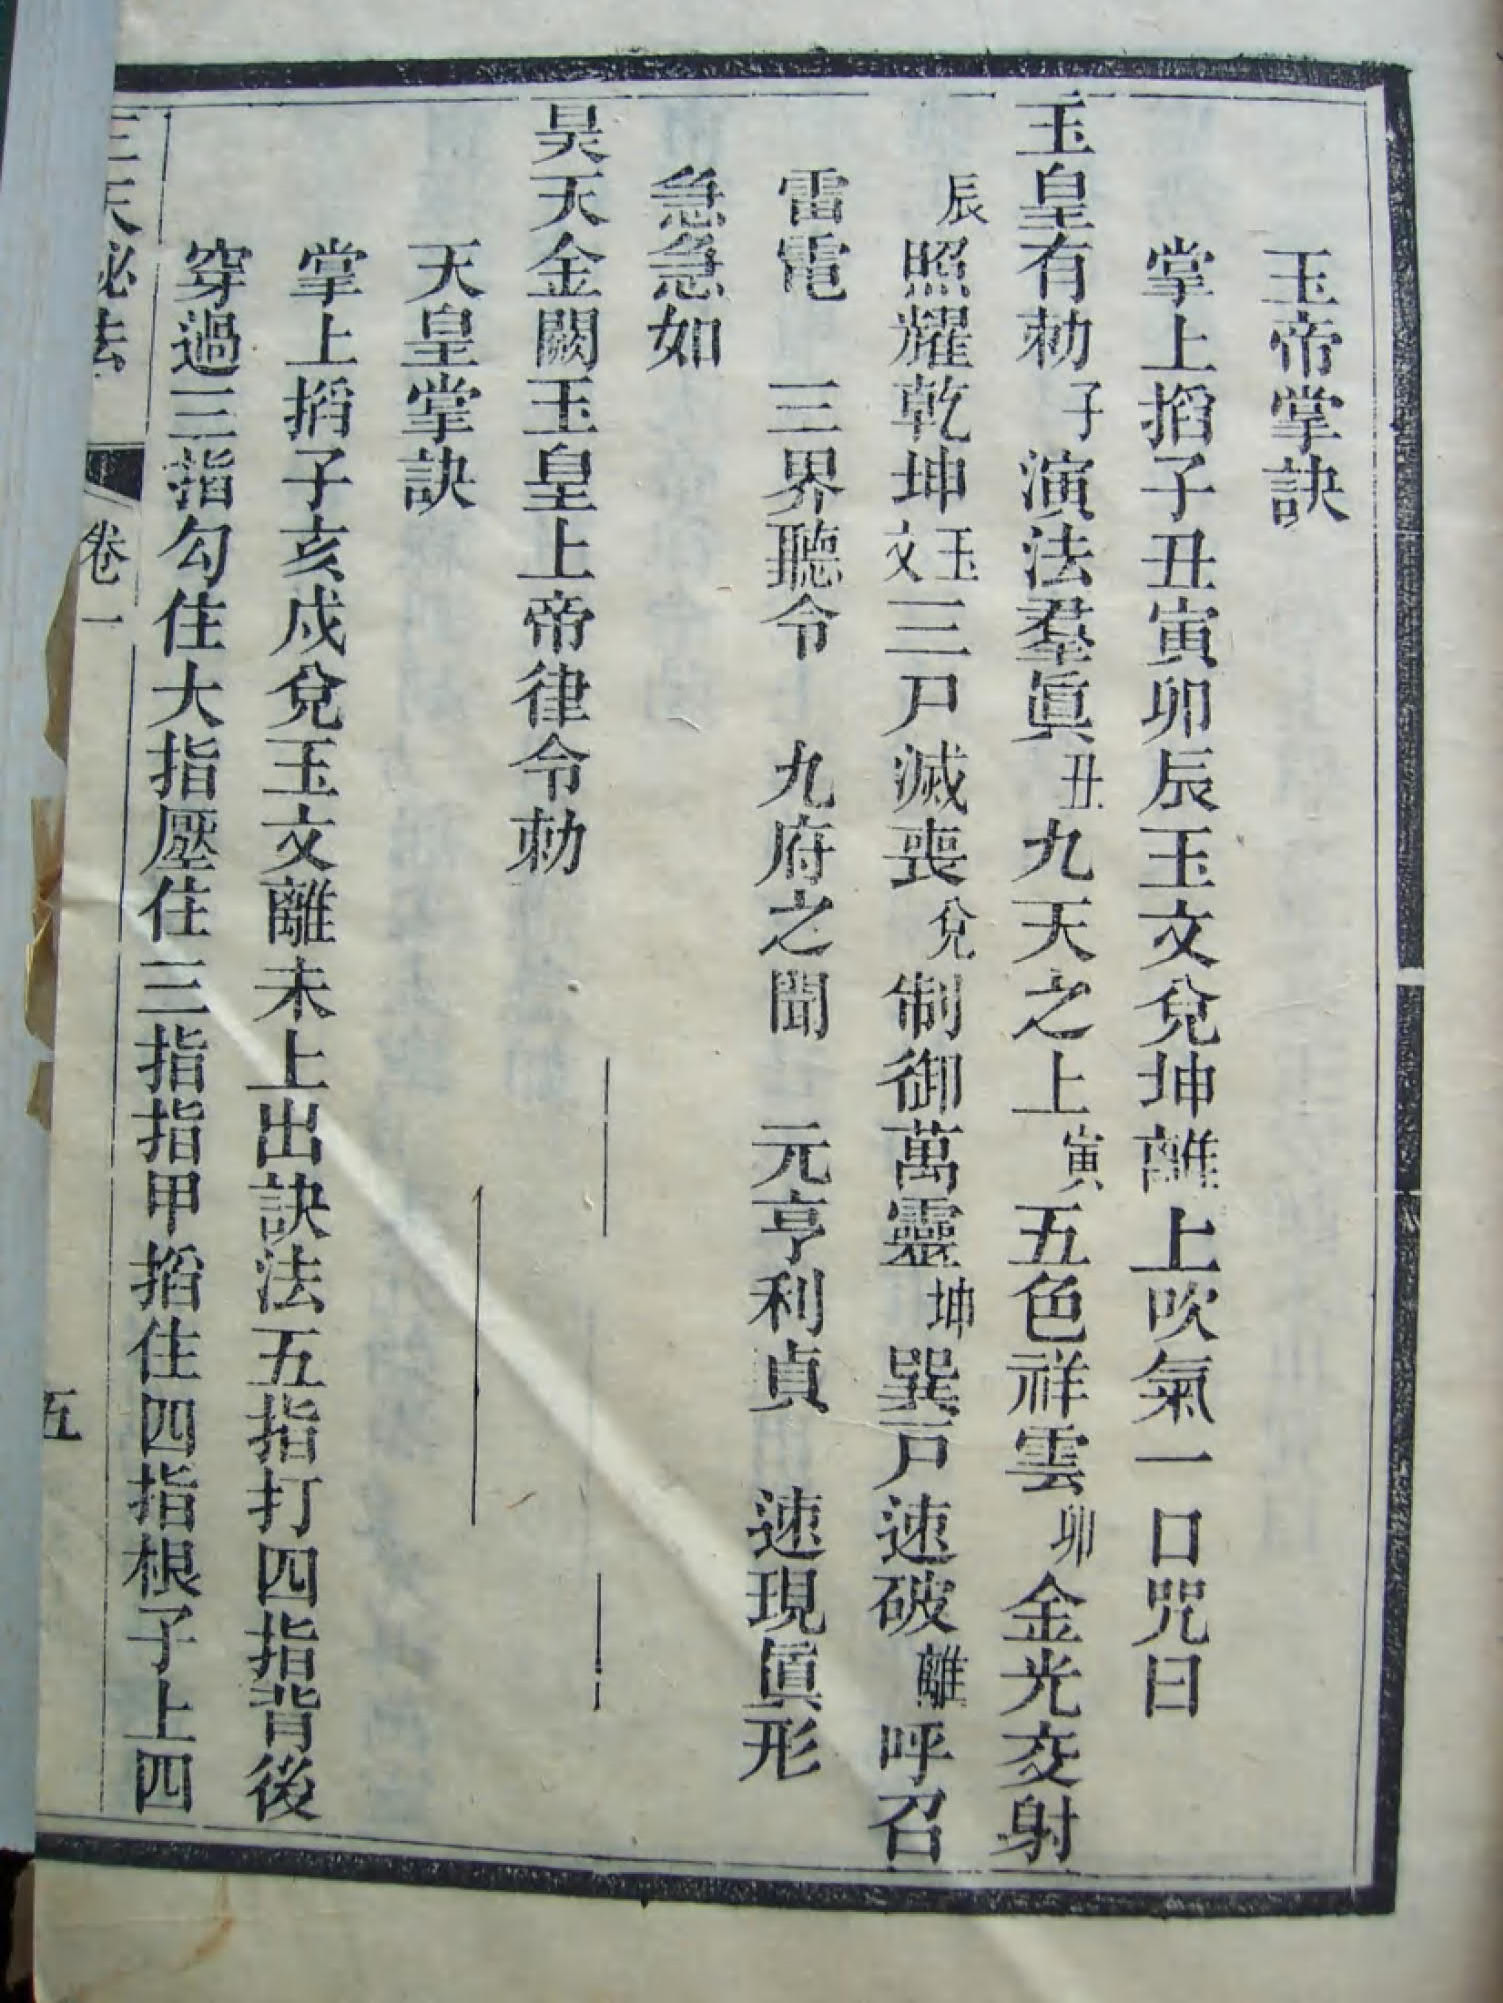 玉帝掌訣
掌上搯子丑寅卯辰玉文兌坤離上吹氣一口咒曰
玉皇有勅子演法羣眞丑九天之上寅五色祥雲卯金光交射
辰照耀乾坤玉文三尸滅喪兌制御萬靈坤巽戸速破離呼召
雷電　三界聽令　九府之聞　元亨利貞　速現眞形
急急如
昊天金闕玉皇上帝律令勅
天皇掌訣
掌上搯子亥戌兌玉文離未上出訣法五指打四指背後
穿過三指勾住大指壓住三指指甲搯住四指根子上四
三天秘法　卷一　五